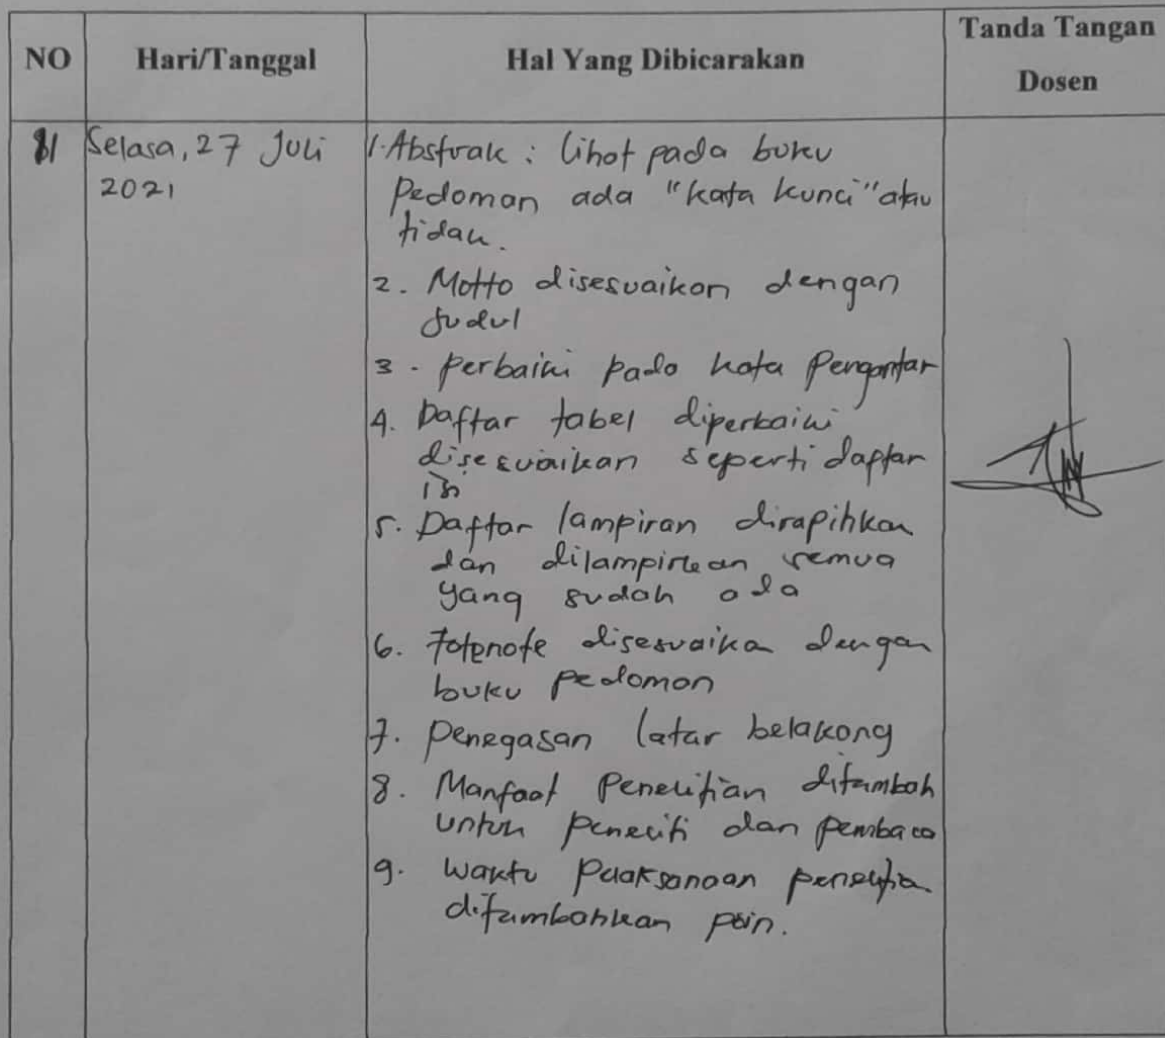 NO Hari/Tanggal Hal Yang Dibicarakan Tanda Tangan Dosen
Selasa, 27 Juli
2021
1. Abstrak : lihat pada buku
Pedoman ada "kata kunci" atau
tidak.
2. Motto disesuaikan dengan
Judul
3. perbaiki pada kata Pengantar
4. Daftar tabel diperbaiki
disesuaikan seperti daftar
isi
5. Daftar lampiran dirapihkan
dan dilampirkan semua
yang sudah ada
6. Fotenote disesuaika dengan
buku pedoman
7. Penegasan latar belakang
8. Manfaat Penelitian ditambah
untuk peneliti dan pembaca
9. waktu Pelaksanaan penelitian
ditambahkan poin.